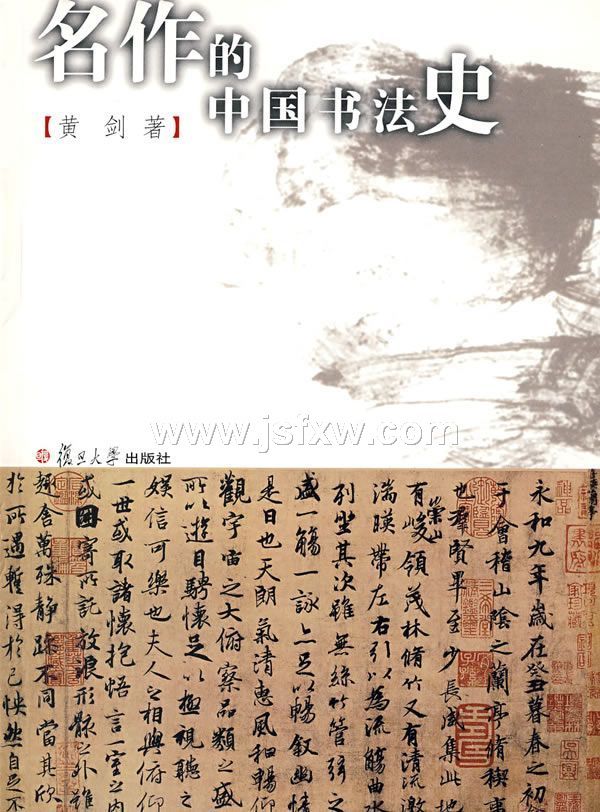 名作的
中国书法史
【黄 剑 著】
www.jsfxw.com
復旦大學出版社
永和九年歲在癸丑暮春之初
于會稽山陰之蘭亭脩稧事
也羣賢畢至少長咸集此地
有崇山峻領茂林脩竹又有清流激
湍暎帶左右引以為流觴曲水
列坐其次雖無絲竹管弦之
盛一觴一詠亦足以暢叙幽情
是日也天朗氣清惠風和暢仰
觀宇宙之大俯察品類之盛
所以遊目騁懷足以極視聽之
娛信可樂也夫人之相與俯仰
一世或取諸懷抱悟言一室之內
或因寄所託放浪形骸之外雖
趣舍萬殊靜躁不同當其欣
於所遇蹔得於己怏然自足不